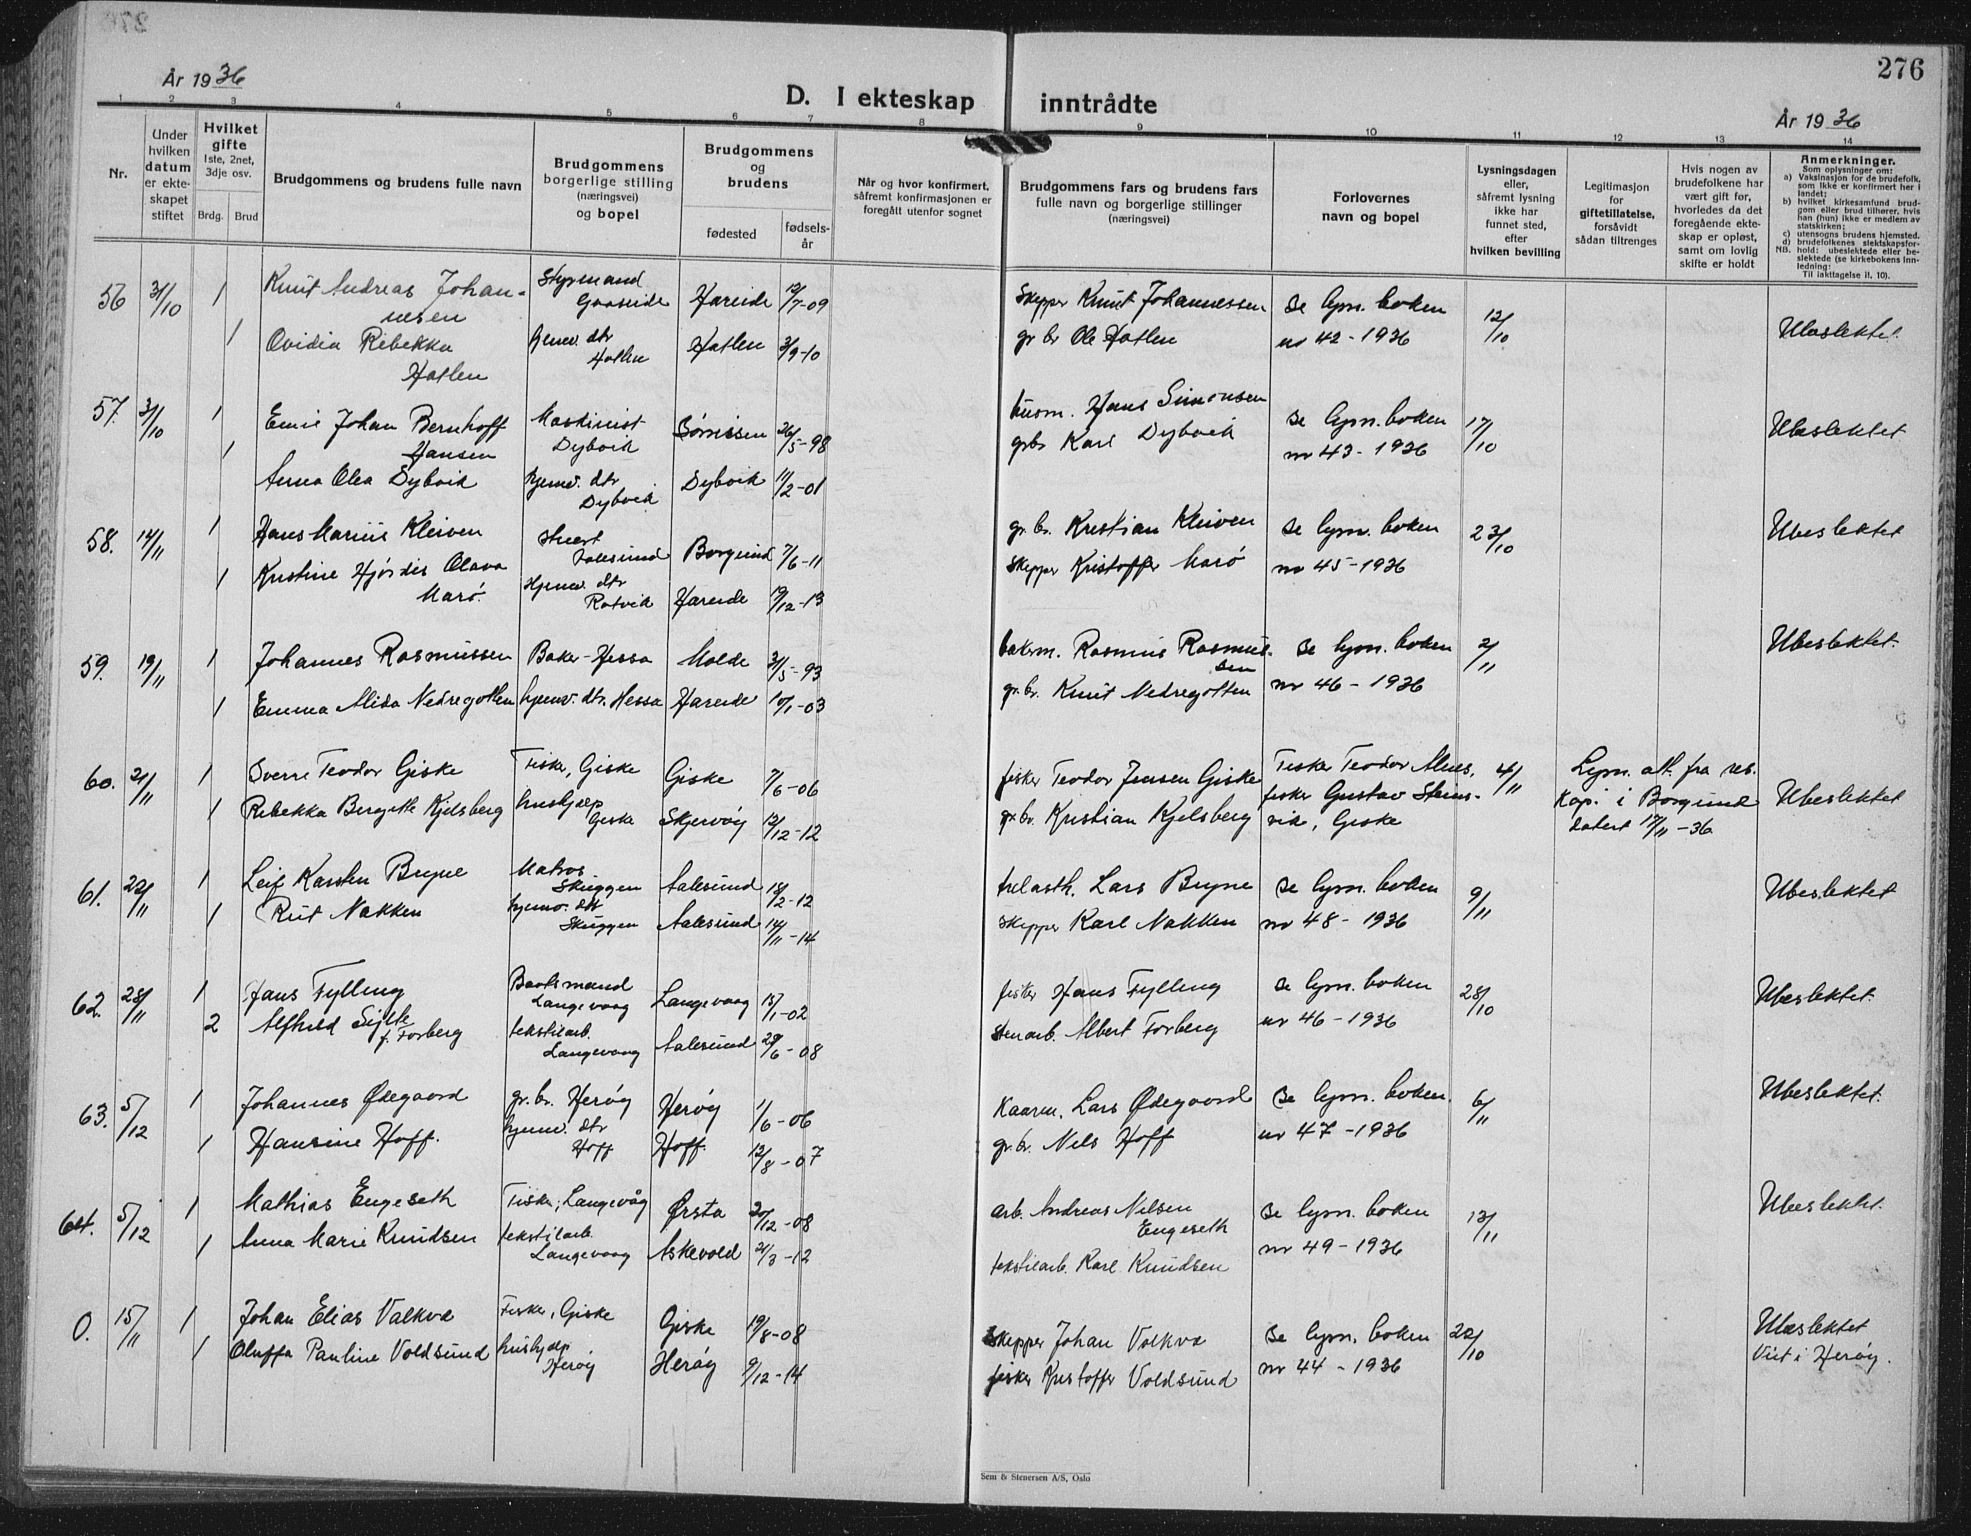 276
År 1936
D. I ekteskap inntrådte
År 1936
1 2 3 4 5 6 7 8 9 10 11 12 13 14
Nr.
Under
hvilken
datum
er ekte-
skapet
stiftet
Hvilket
gifte
1ste, 2net,
3dje osv.
Brdg. Brud
Brudgommens og brudens fulle navn
Brudgommens
borgerlige stilling
(næringsvei)
og bopel
Brudgommens
og
brudens
fødested
fødsels-
år
Når og hvor konfirmert,
såfremt konfirmasjonen er
foregått utenfor sognet
Brudgommens fars og brudens fars
fulle navn og borgerlige stillinger
(næringsvei)
Forlovernes
navn og bopel
Lysningsdagen
eller,
såfremt lysning
ikke har
funnet sted,
efter
hvilken bevilling
Legitimasjon
for
giftetillatelse,
forsåvidt
sådan tiltrenges
Hvis nogen av
brudefolkene har
vært gift før,
hvorledes da det
foregående ekte-
skap er opløst,
samt om lovlig
skifte er holdt
Anmerkninger.
Som oplysninger om:
a) Vaksinasjon for de brudefolk,
som ikke er konfirmert her i
landet;
b) hvilket kirkesamfund brud-
gom eller brud tilhører, hvis
han (hun) ikke er medlem av
statskirken;
c) utensogns brudens hjemsted.
d) brudefolkenes slektskapsfor-
hold: ubeslektede eller be-
slektede (se kirkebokens inn-
ledning:
NB. Til iakttagelse il. 10).
56 31/10 1 Knut Andreas Johan- Styrmand Hareide 12/7-09 Skipper Knut Johannessen se lysn. boken 12/10
nesen Gaaseide
1 Ovidia Rebekka hjemv. dtr Hatlen 3/9-10 gr. br Ole Hatlen nr 42-1936 Ubeslektet.
Hatlen Hatlen
57. 31/10 1 Emil Johan Bernhoff Maskinist 26/5-98 husm. Hans Simonsen se lysn. boken 17/10 Ubeslektet
Hansen Dybvik
1 Anna Olea Dybvik hjemv. dtr Dybvik 11/2-01 grbr Karl Dybvik nr 43-1936
Dybvik
58. 14/11 1 Hans Marius Kleiven Stuert Borgund 7/6-11 gr. br. Kristian Kleiven se lysn. boken 23/10 Ubeslektet
Aalesund
1 Kristine Hjørdis Olava Hjemv. dtr Hareide 19/12-13 Skipper Kristoffer Marø nr 45-1936
Marø. Rotvik
59. 19/11 1 Johannes Rasmussen Baker-Hessa Molde 31/5-93 bakerm. Rasmus Rasmus- se lysn. boken 2/11 Ubeslektet.
sen
1 Emma Alida Nedregotten hjemv. dtr. Hessa Hareide 10/1-03 gr. br. Knut Nedregotten nr 46-1936
60. 21/11 1 Sverre Teodor Giske Fisker, Giske Giske 7/6-06 fisker Teodor Jensen Giske Fisker Teodor Alnes, 4/11 Lysn. att. fra res.
1 Rebekka Bergitte Kjelsberg hushjelp Skjervøy 12/12-12 gr. br. Kristian Kjelsberg fisker Gustav Stens- kap. i Borgund Ubeslektet
Giske vik, Giske datert 17/11-36
61. 22/11 1 Leif Karsten Bryne Matros Aalesund 18/2-12 trelasth. Lars Bryne se lysn. boken 9/11 Ubeslektet
Skuggen
1 Rut Nakken hjemv. dtr Aalesund 14/11-14 Skipper Karl Nakken nr 48-1936
Skuggen
62. 28/11 1 Hans Fylling Baatsmand Langevaag 15/1-02 fisker Hans Fylling se lysn. boken 28/10 Ubeslektet.
Langevaag
2 Alfhild Sylte tekstilarb. Aalesund 29/6-08 Stenarb. Albert Forberg nr 46-1936
f. Forberg Langevaag
63. 5/12 1 Johannes Ødegaard gr. br. Herøy Herøy 1/6-06 Kaarm. Lars Ødegaard se lysn. boken. 6/11 Ubeslektet.
1 Hansine Hoff. hjemv. dtr Hoff. 12/8-07 gr. br. Nils Hoff nr 47-1936
Hoff
64. 5/12 1 Mathias Engeseth Fisker, Langevåg Ørsta 20/12-08 arb. Andreas Nilsen se lysn. boken 13/11 Ubeslektet.
Engeseth
1 Anna Marie Knudsen tekstilarb. Askevold 21/3-12 tekstilarb. Karl Knudsen nr 49-1936
Langevaag
0. 15/11 1 Johan Elias Valkva Fisker, Giske Giske 19/8-08 Skipper Johan Valkva se lysn. boken 22/10 Ubeslektet
1 Oluffa Pauline Voldsund hushjelp Herøy 9/12-14 fisker Kristoffer Voldsund nr 44-1936 Viet i Herøy.
Herøy
Sem & Stenersen A/S, Oslo